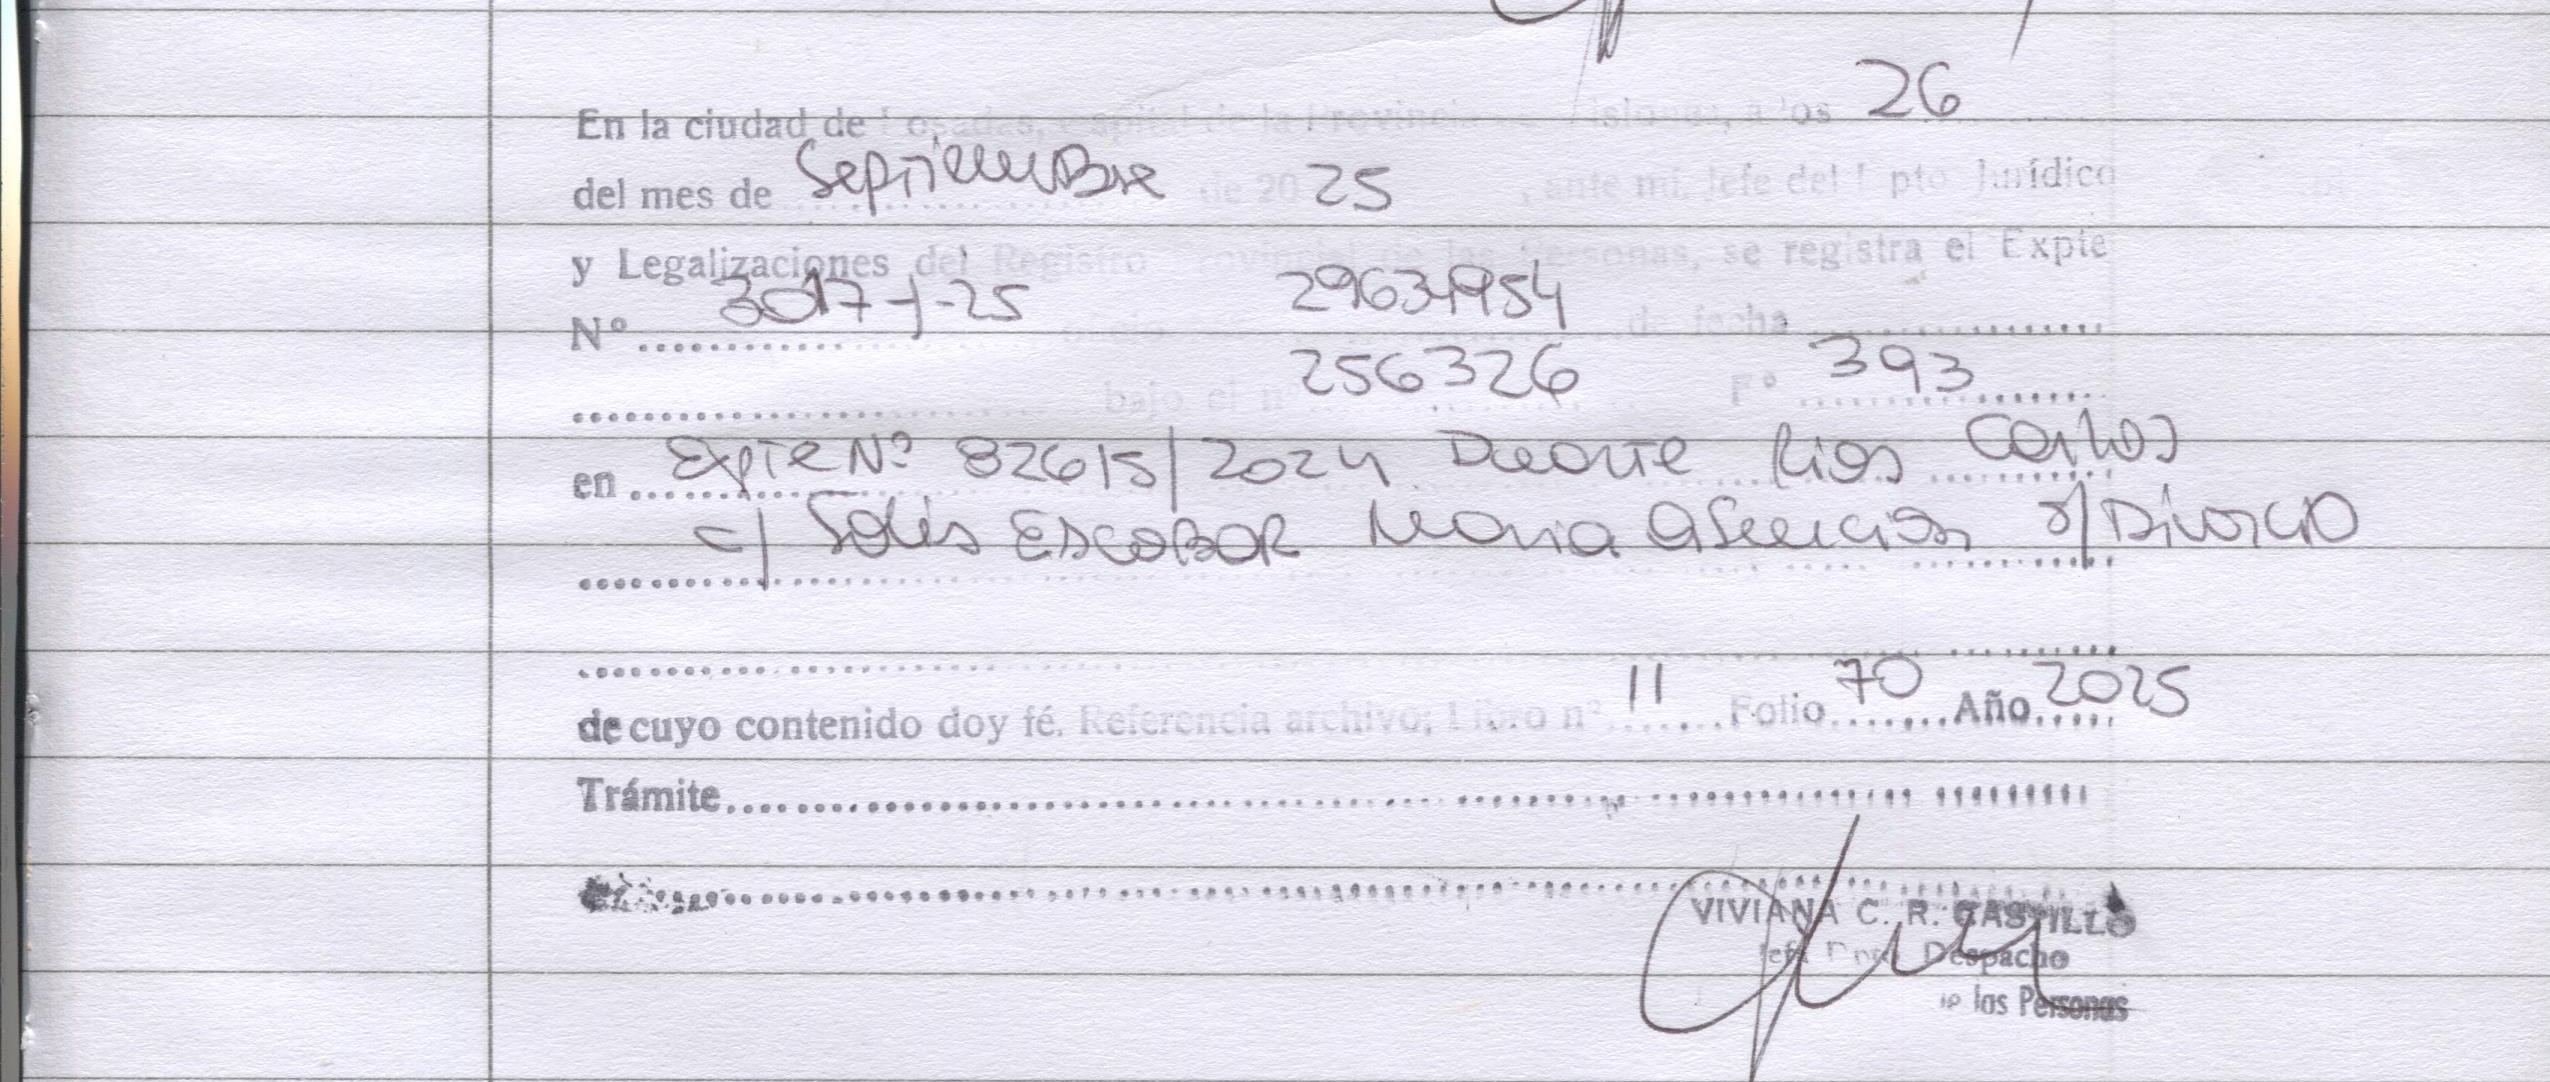 En la ciudad de Posadas, capital de la Provincia de Misiones, a los 26
del mes de Septiembre de 20 25, ante mi, Jefe del Dpto Jurídico
y Legalizaciones del Registro Provincial de las Personas, se registra el Expte
Nº 3017-J-25 oficio 29634954 de fecha
bajo el nº 256326 Fº 393
en Expte Nº 82615/2024 Duarte Rios Carlos
c/ Solis Escobar Maria Asuncion s/ Divorcio
de cuyo contenido doy fé. Referencia archivo; Libro nº 11 Folio 70 Año 2025
Trámite
VIVIANA C. R. CASTILLO
Jefe Dpto Despacho
de las Personas